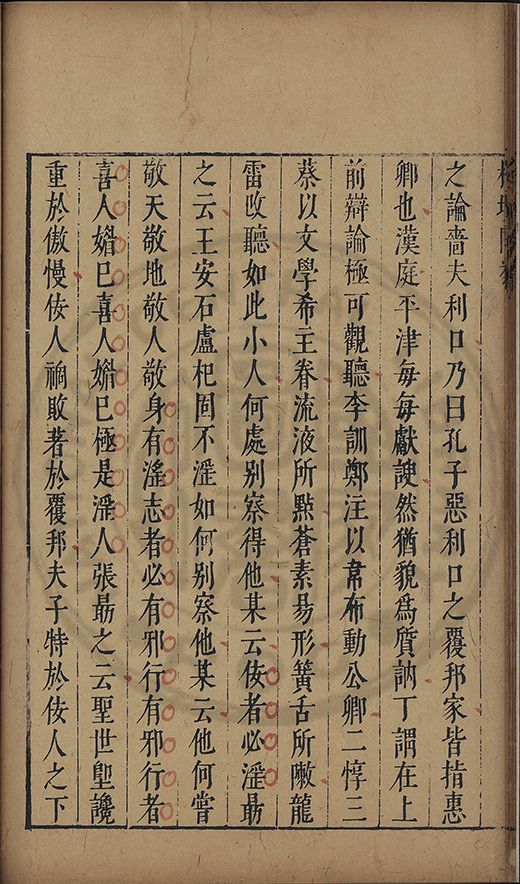 之論嗇夫利口乃曰孔子惡利口之覆邦家皆指惠
卿也漢庭平津每每獻諛然猶貌爲質訥丁謂在上
前辯論極可觀聽李訓鄭注以韋布動公卿二惇三
蔡以文學希主眷流液所點蒼素易形簧舌所噉龍
雷改聽如此小人何處别察得他某云佞者必滛勗
之云王安石盧杞固不滛如何别察他某云他何嘗
敬天敬地敬人敬身有滛志者必有邪行有邪行者
喜人媚巳喜人媚巳極是滛人張勗之云聖世塱讒
重於傲慢佞人禍敗著於覆邦夫子特於佞人之下